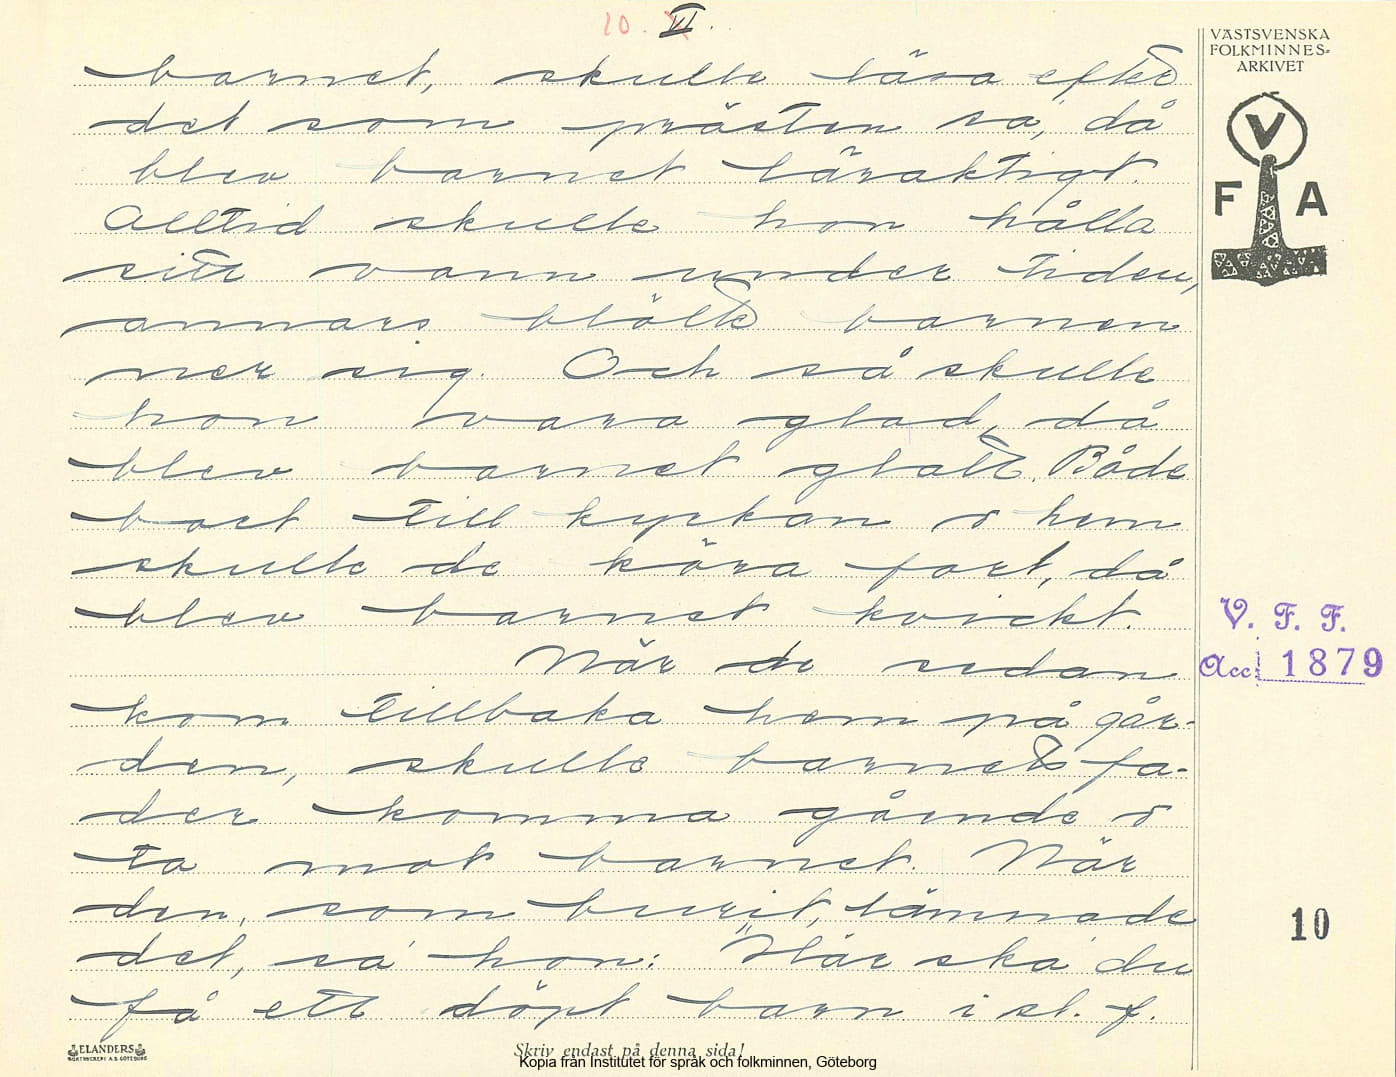 10. VI.
barnet, skulle läsa efter
det som prästen sa, då
blev barnet läraktigt.
Alltid skulle hon hålla
sitt vann under tiden,
annars blötte barnen
ner sig. Och så skulle
hon vara glad, då
blev barnet glatt. Både
bort till kyrkan o hem
skulle de köra fort, då
blev barnet kvickt.
När de sedan
kom tillbaka hem på går-
den, skulle barnets fa-
der komma gående o
ta mot barnet. När
den, som burit, lämnade
det, sa hon: "Här ska du
få ett döpt barn i st. f.
VÄSTSVENSKA
FOLKMINNES-
ARKIVET
V
F A
V. F. F.
Acc. 1879
10
ELANDERS
BOKTRYCKERI A.B. GÖTEBORG
Skriv endast på denna sida!
Kopia från Institutet för språk och folkminnen, Göteborg